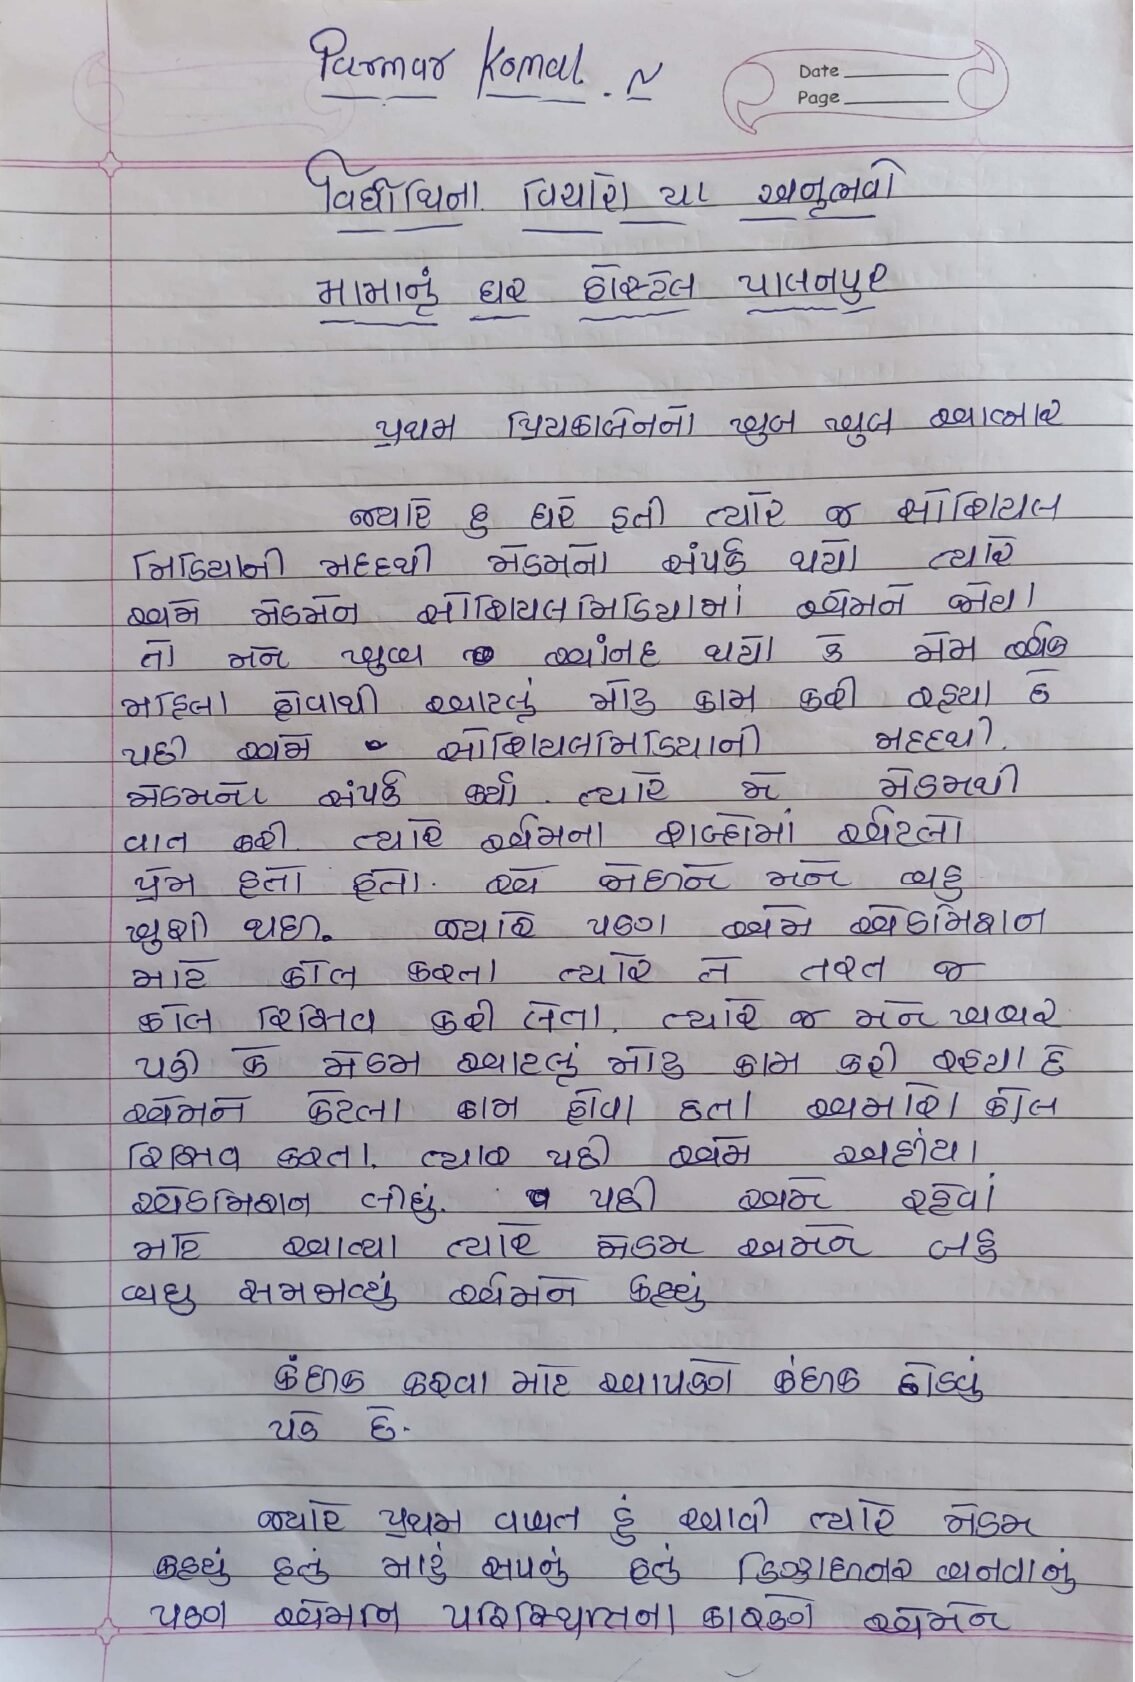 Parmar Komal. N
Date
Page
વિર્ધાથિના વિચારો યા અનુભવો
મામાનું ઘર હોસ્ટેલ પાલનપુર
પ્રથમ પ્રિયકાબેનનો ખુબ ખુબ આભાર
જ્યારે હુ ઘરે હતી ત્યારે જ સોશિયલ
મિડિયાની મદદથી મેડમનો સંપર્ક થયો ત્યારે
અમે મેડમેને સોશિયલમિડિયામાં એમને જોયા
તો મને ખુબ આંનદ થયો કે એક
મહિલા હોવાથી આટલું મોટુ કામ કરી રહ્યા છે
પછી અમે સોશિયલમિડિયાની મદદથી
મેડમનો સંપર્ક કર્યો ત્યારે મે મેડમથી
વાત કરી ત્યારે એમના શબ્દોમાં એટલો
પ્રેમ હતો હતા. એ જોઈને મને બહુ
ખુશી થઈ. જ્યારે પણ અમે એડમિશન
માટે કોલ કરતા ત્યારે તે તરત જ
કોલ રિસિવ કરી લેતા. ત્યારે જ મને ખબર
પડી કે મેડમ આટલું મોટુ કામ કરી રહ્યા છે
એમને કેટલા કામ હોવા છતા અમારો કોલ
રિસિવ કરતા. ત્યાર પછી અમે અહીંયા
એડમિશન લીધું. પછી અમે રહેવાં
માટે આવ્યા ત્યારે મેડમ અમને બહુ
બધુ સમજાવ્યું એમને કહ્યું
કંઈક કરવા માટે આપણે કંઈક છોડવું
પડે છે.
જ્યારે પ્રથમ વખત હું આવી ત્યારે મેડમ
કહ્યું હતું મારું સપનું હતું ડિઝાઈનર બનવાનું
પણ પરિસ્થિતિના કારણે એમને